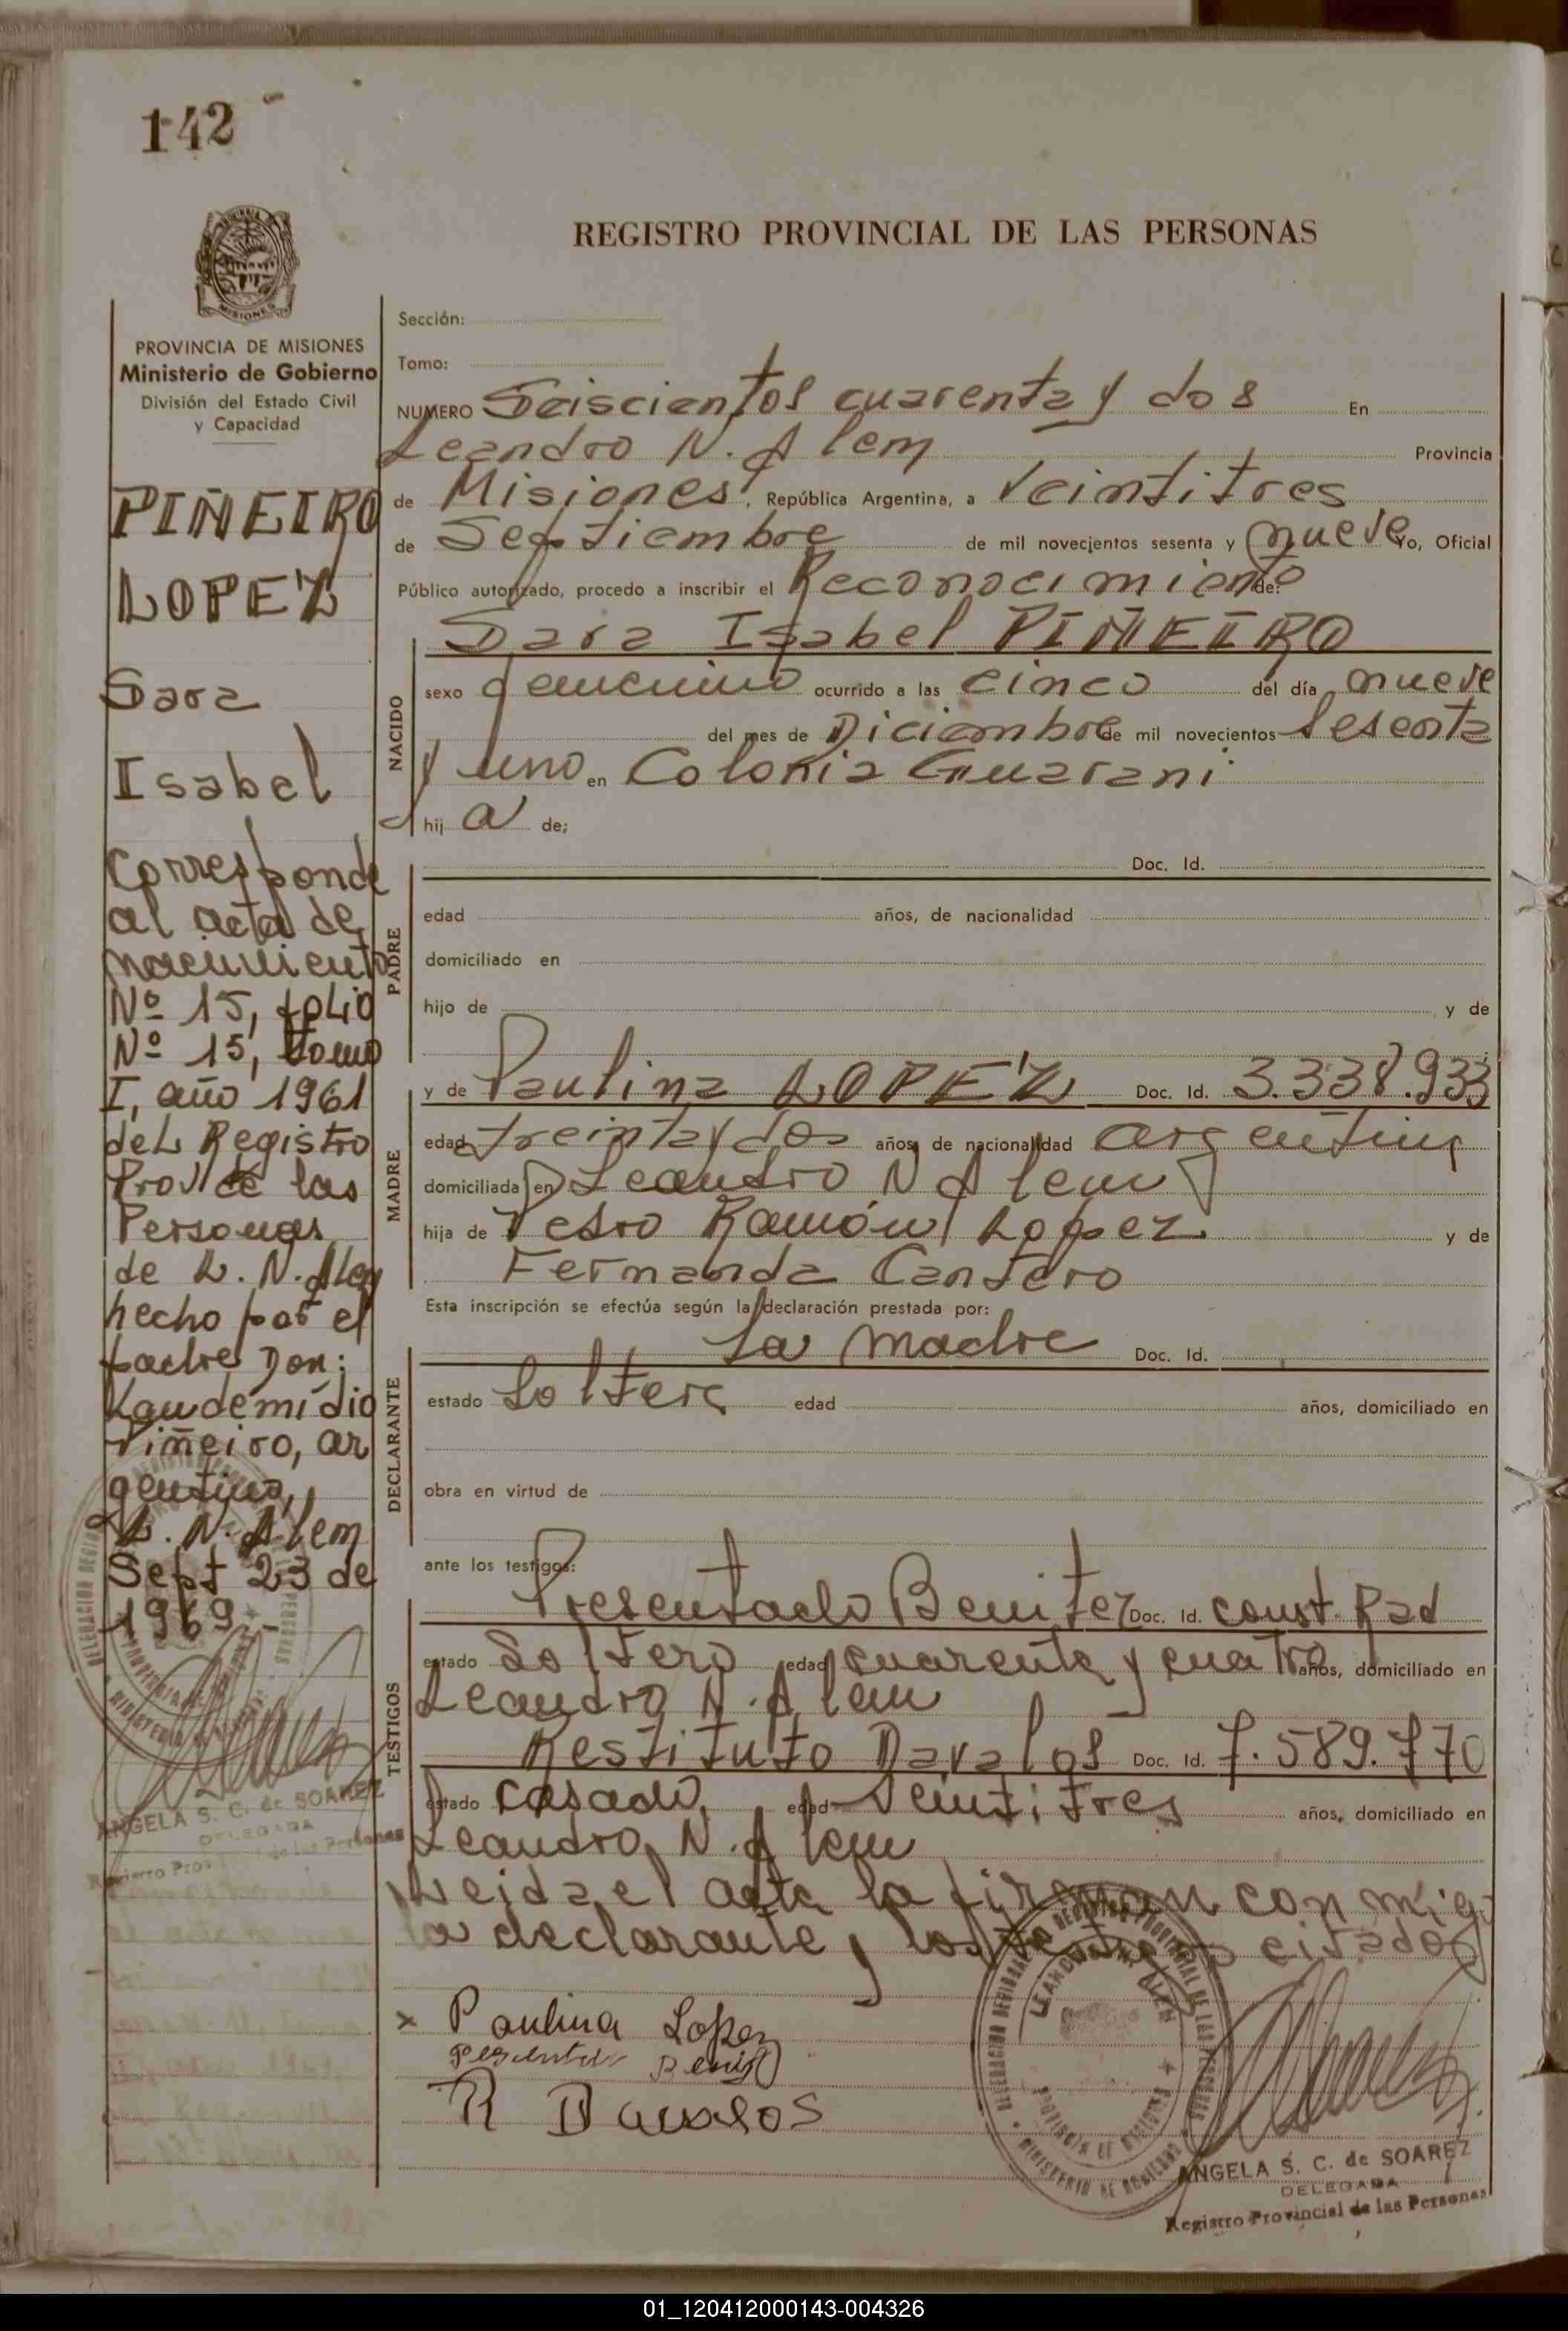 142
REGISTRO PROVINCIAL DE LAS PERSONAS
MISIONES
PROVINCIA DE MISIONES
Ministerio de Gobierno
División del Estado Civil
y Capacidad
PIÑEIRO
LOPEZ
Sara
Isabel
Corresponde
al acta de
nacimiento
Nº 15, folio
Nº 15, tomo
I, año 1961
del Registro
Prov de las
Personas
de L. N. Alem
hecho por el
padre Don:
Laudemídio
Piñeiro, ar
gentino,
L. N. Alem
Sept 23 de
1969.-
ANGELA S. C. de SOAREZ
DELEGADA
Registro Provincial de las Personas
Sección:
Tomo:
NUMERO Seiscientos cuarenta y dos En
Leandro N. Alem Provincia
de Misiones, República Argentina, a Veintitres
de Septiembre de mil novecientos sesenta y nueve Yo, Oficial
Público autorizado, procedo a inscribir el Reconocimiento de:
Sara Isabel PIÑEIRO
NACIDO
sexo femenino ocurrido a las cinco del día nueve
del mes de Diciembre de mil novecientos Sesenta
y uno en Colonia Guarani
hij a de;
PADRE
Doc. Id.
edad años, de nacionalidad
domiciliado en
hijo de y de
MADRE
y de Paulina LOPEZ Doc. Id. 3.338.933
edad treinta y dos años, de nacionalidad argentina
domiciliada en Leandro N Alem
hija de Pedro Ramón Lopez y de
Fernanda Cantero
Esta inscripción se efectúa según la declaración prestada por:
DECLARANTE
La madre Doc. Id.
estado Soltera edad años, domiciliado en
obra en virtud de
ante los testigos:
TESTIGOS
Presentado Benitez Doc. Id. const. Rad
estado Soltero edad cuarenta y cuatro años, domiciliado en
Leandro N. Alem
Restituto Davalos Doc. Id. 7.589.770
estado casado, edad Veintitres años, domiciliado en
Leandro N. Alem
Leida el acta la firman con migo
la declarante y los testigos citados
x Paulina Lopez
R Davalos
DELEGACION REGISTRO PROVINCIAL DE LAS PERSONAS
LEANDRO N. ALEM
PROVINCIA DE MISIONES
MINISTERIO DE GOBIERNO
ANGELA S. C. de SOAREZ
DELEGADA
Registro Provincial de las Personas
01_120412000143-004326